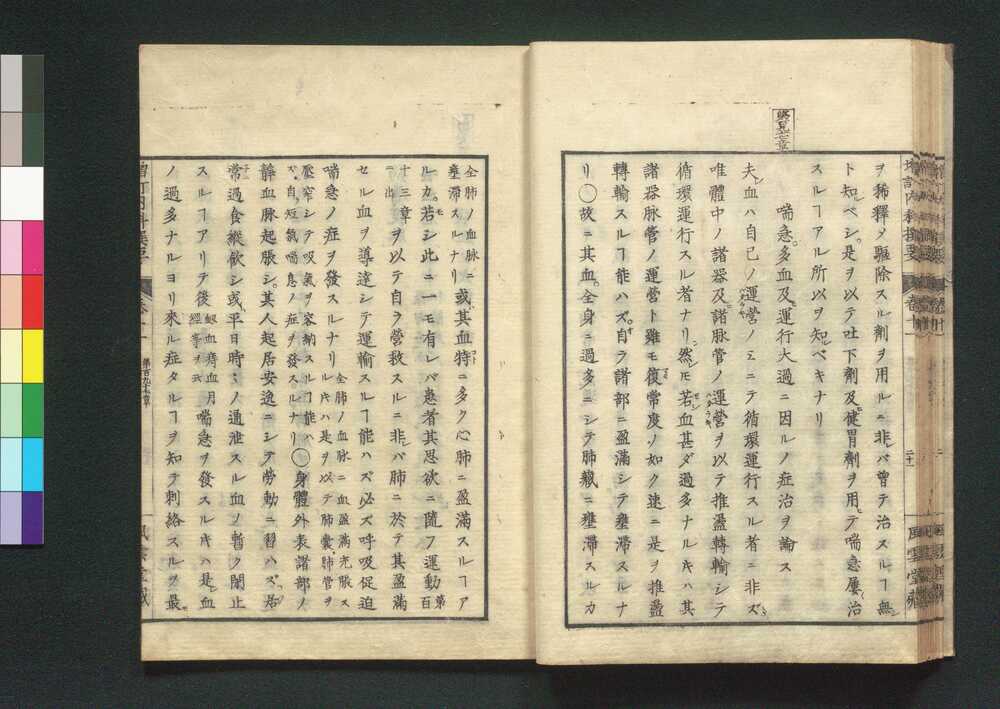 ヲ稀釋メ驅除スル劑ヲ用ルニ非レバ曽テ治スルヿ無シ
ト知ルベシ是ヲ以テ吐下劑及健胃劑ヲ用ヒテ喘息屢〻治
スルヿアル所以ヲ知ルベキナリ
喘息多血及ヒ運行大過ニ因ルノ症治ヲ論ス
夫レ血ハ自己ノ運營ノミニテ循環運行スル者ニ非ズ
唯體中ノ諸器及諸脉管ノ運營ヲ以テ推盪轉輸シテ
循環運行スル者ナリ然レモ若シ血甚ダ過多ナルキハ其
諸器脉管ノ運營ト雖モ復常度ノ如ク速ニ是ヲ推盪
轉輸スルヿ能ハズ自ラ諸部ニ盈滿シテ壅滯スルナ
リ〇故ニ其血全身ニ過多ニシテ肺臓ニ壅滯スルカ
全肺ノ血脉ニ壅滯スルナリ或ハ其血特ニ多ク心肺ニ盈滿スルヿア
ルカ若シ此ニ一モ有レバ患者其思欲ニ隨フ運動第百
十三章ニ出ヲ以テ自ラ營救スルニ非レバ肺ニ於テ其盈滿
セル血ヲ導達シテ運輸スルヿ能ハズ必ズ呼吸促迫
喘急ノ症ヲ發スルナリ全肺ノ血脉ニ血盈滿充脹ス
ルキハ是ヲ以テ肺囊肺管ヲ
壓窄シテ吸氣ヲ容納スルヿ能ハ
ズ自ラ短氣喘息ノ症ヲ發スルナリ〇身體外表諸部ノ
靜血脉起脹シ其人起居安逸ニシテ勞動ニ習ハズ居
常過食縱欲シ或ハ平日時〻ノ通泄スル血ノ暫ク閉止
スルヿアリテ後衂血痔血月經等ヲ云喘急ヲ發スルキハ是レ血
ノ過多ナルヨリ來ル症タルヿヲ知テ刺絡スルヲ最
増訂内科撰要
卷十一
第百九十七章
風雲堂藏